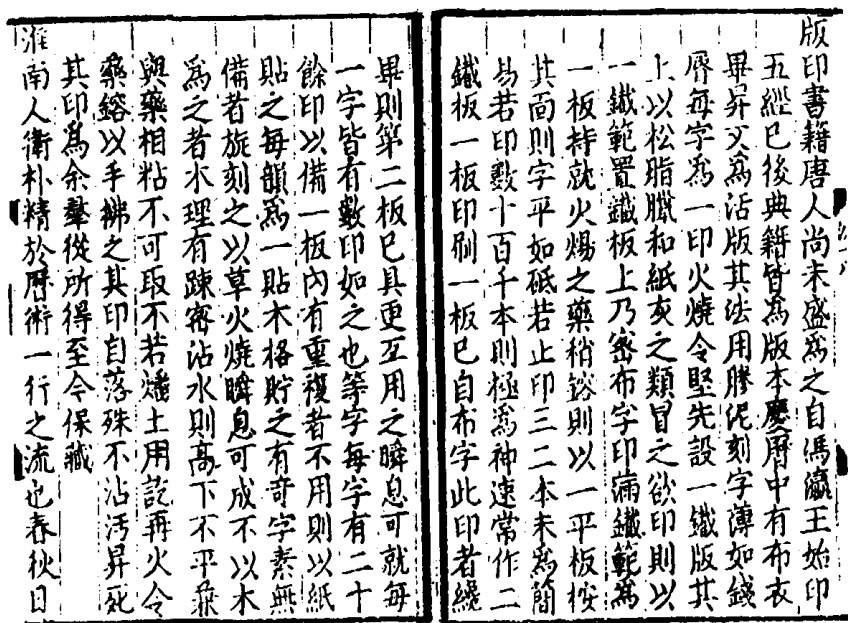 版印書籍唐人尚未盛爲之自馮瀛王始印
五經已後典籍皆爲版本慶曆中有布衣
畢昇又爲活版其法用膠泥刻字薄如錢
脣每字爲一印火燒令堅先設一鐵版其
上以松脂臘和紙灰之類冒之欲印則以
一鐵範置鐵板上乃密布字印滿鐵範爲
一板持就火煬之藥稍鎔則以一平板按
其面則字平如砥若止印三二本未爲簡
易若印數十百千本則極爲神速常作二
鐵板一板印刷一板已自布字此印者纔
畢則第二板已具更互用之瞬息可就每
一字皆有數印如之也等字每字有二十
餘印以備一板內有重複者不用則以紙
貼之每韻爲一貼木格貯之有奇字素無
備者旋刻之以草火燒瞬息可成不以木
爲之者木理有踈密沾水則高下不平兼
與藥相粘不可取不若燔土用訖再火令
藥鎔以手拂之其印自落殊不沾汚昇死
其印爲余羣從所得至今保藏
淮南人衛朴精於曆術一行之流也春秋日